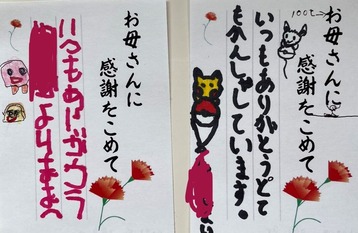 お母さんに
感謝をこめて
100さい
いつもありがとうとて
もかんしゃしています。
お母さんに
感謝をこめて
いつもありがとう
よりままへ